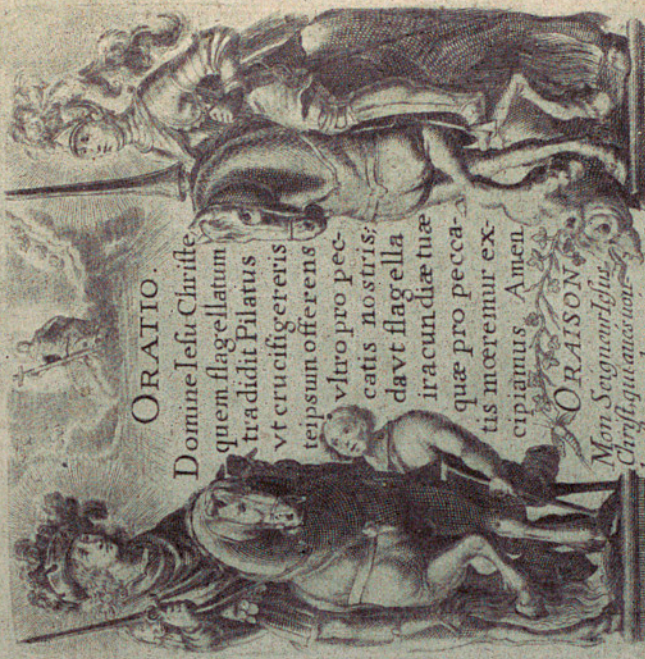 ORATIO.
Domine Iesu Christe,
quem flagellatum
tradidit Pilatus
vt crucifigereris
teipsum offerens
vltro pro pec-
catis nostris;
da vt flagella
iracundiæ tuæ
quæ pro pecca-
tis mœremur ex-
cipiamus Amen
ORAISON
Mon Seigneur Iesus
Christ, qui aues